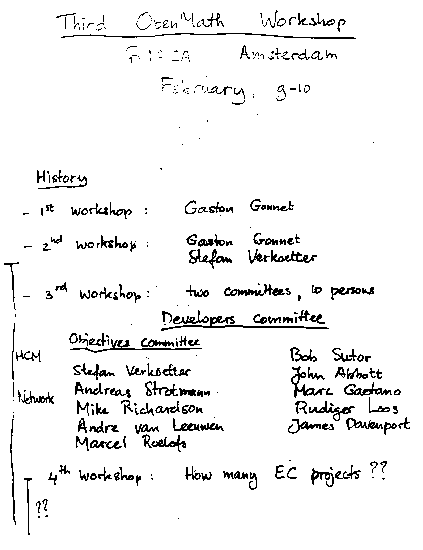 Third OpenMath Workshop
Amsterdam
February, 9-10
History
- 1st workshop : Gaston Gonnet
- 2nd workshop : Gaston Gonnet
Stefan Vorkoetter
- 3rd workshop : two committees, 10 persons
Developers committee
Objectives committee
HCM
Network
Stefan Vorkoetter
Andreas Strotmann
Mike Richardson
Andre van Leeuwen
Marcel Roelofs
Bob Sutor
John Abbott
Marc Gaetano
Rudiger Loos
James Davenport
4th workshop : How many EC projects ??
??